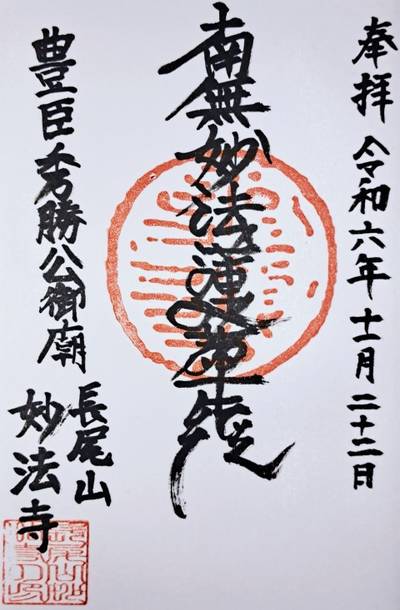 奉拝 令和六年十一月二十二日
南無妙法蓮華経
豊臣秀勝公御廟
長尾山
妙法寺